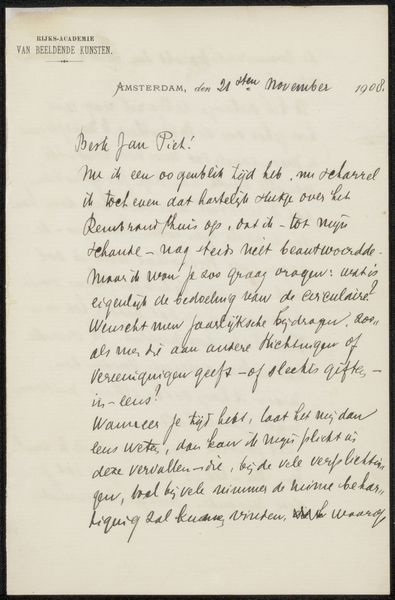 RIJKS-ACADEMIE
VAN BEELDENDE KUNSTEN.
AMSTERDAM, den 21sten November 1908.
Beste Jan Piet!
Nu ik een oogenblik tijd heb, nu scharrel
ik toch even dat hartelijk stukje over het
Rembrandthuis op, dat ik - tot mijn
schande - nog steeds niet beantwoordde.
Maar ik wou je zoo graag vragen: wat is
eigenlijk de bedoeling van de circulaire?
Wenscht men jaarlijksche bijdragen, zoo-
als men die aan andere stichtingen of
vereenigingen geeft - of slechts giften -
in-eens?
Wanneer je tijd hebt, laat het mij dan
eens weten, dan kan ik mijn plicht in
deze vervullen - die, bij de vele verplichtin-
gen, toch bij vele nimmer de ruime behar-
tiging zal kunnen vinden, waarop